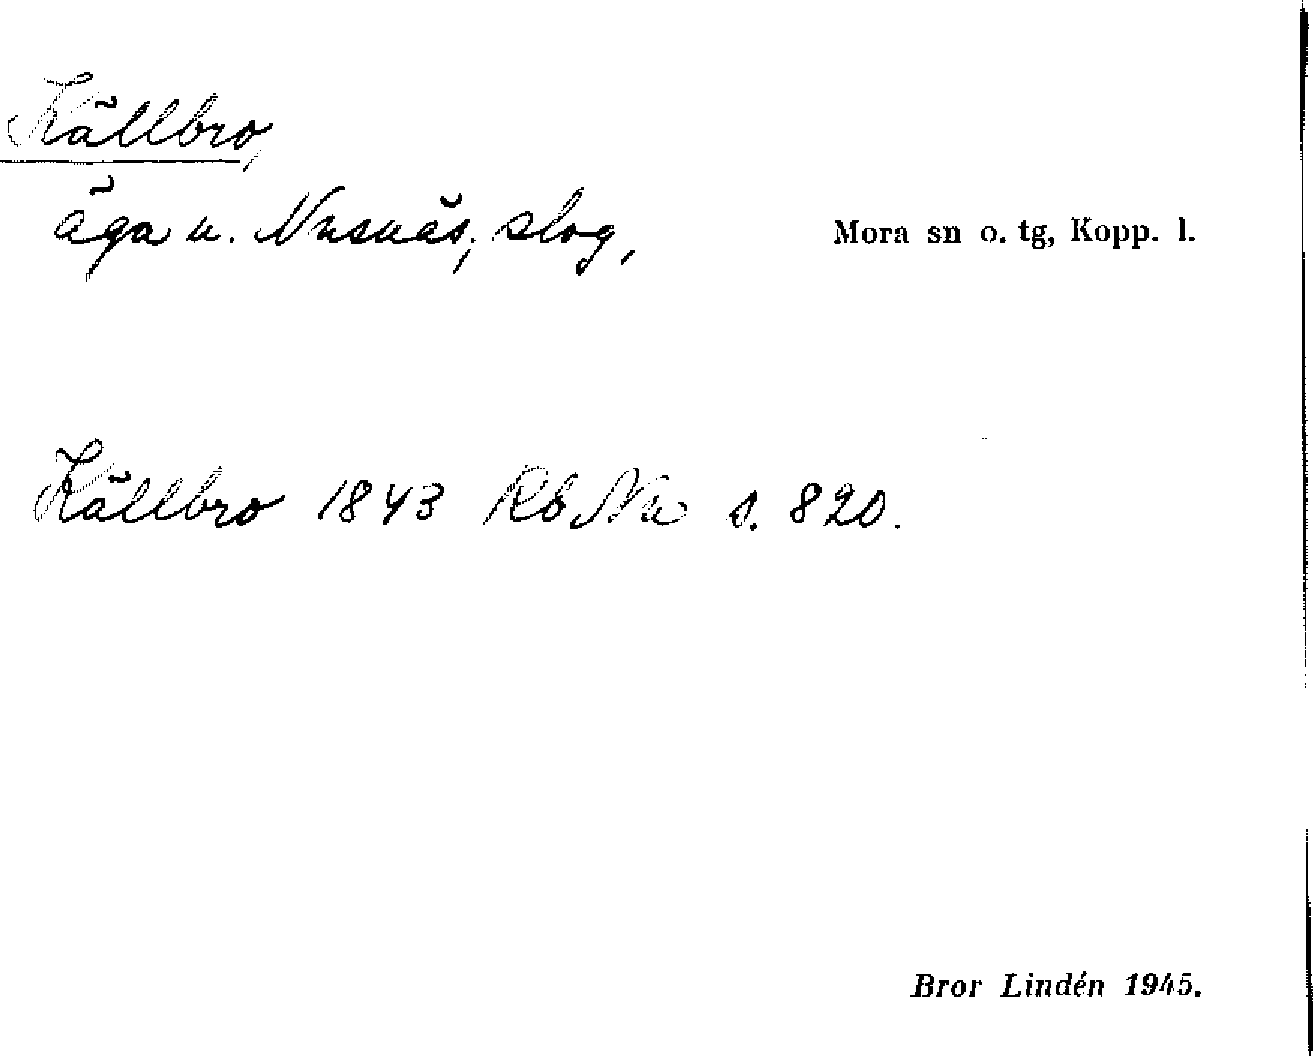 Källbro,
äga u. Nusnäs, skog,
Mora sn o. tg, Kopp. l.
Källbro 1843 Rb Nu s. 820.
Bror Lindén 1945.